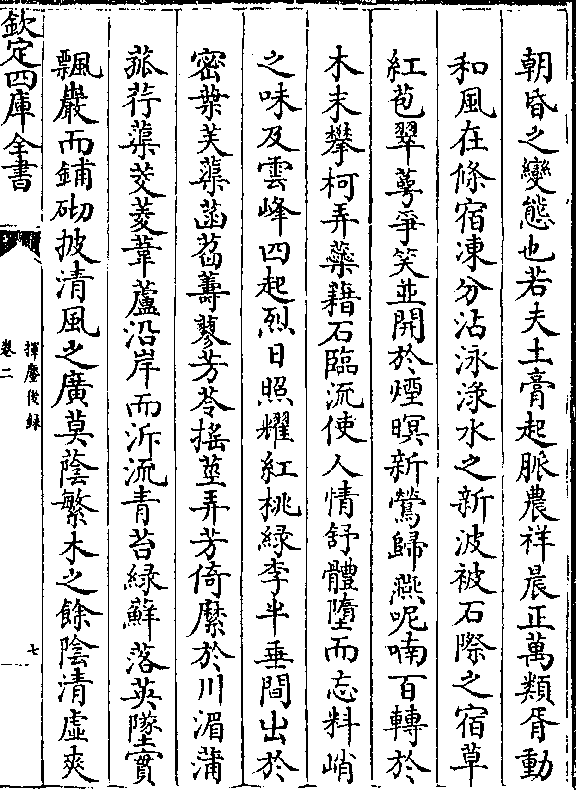 朝昏之變態也若夫土膏起脈農祥晨正萬類胥動
和風在條宿凍分沾泳淥水之新波被石際之宿草
紅苞翠萼爭笑並開於煙暝新鶯歸燕呢喃百轉於
木末攀柯弄蘂藉石臨流使人情舒體墮而忘料峭
之味及雲峰四起烈日照耀紅桃綠李半垂間出於
密葉芙蕖菡萏薵蓼芳苓搖莖弄芳倚縻於川湄蒲
菰荇蕖茭菱葦蘆沿岸而泝流青苔綠蘚落英墜實
飄巖而鋪砌披清風之廣莫蔭繁木之餘陰清虛爽
欽定四庫全書
揮麈後録
卷二
七